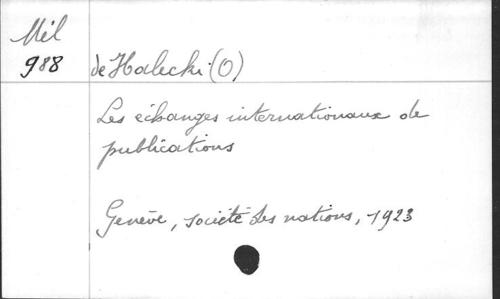 Mél
988
de Halecki (O)
Les échanges internationaux de
publications
Genève, société des nations, 1923